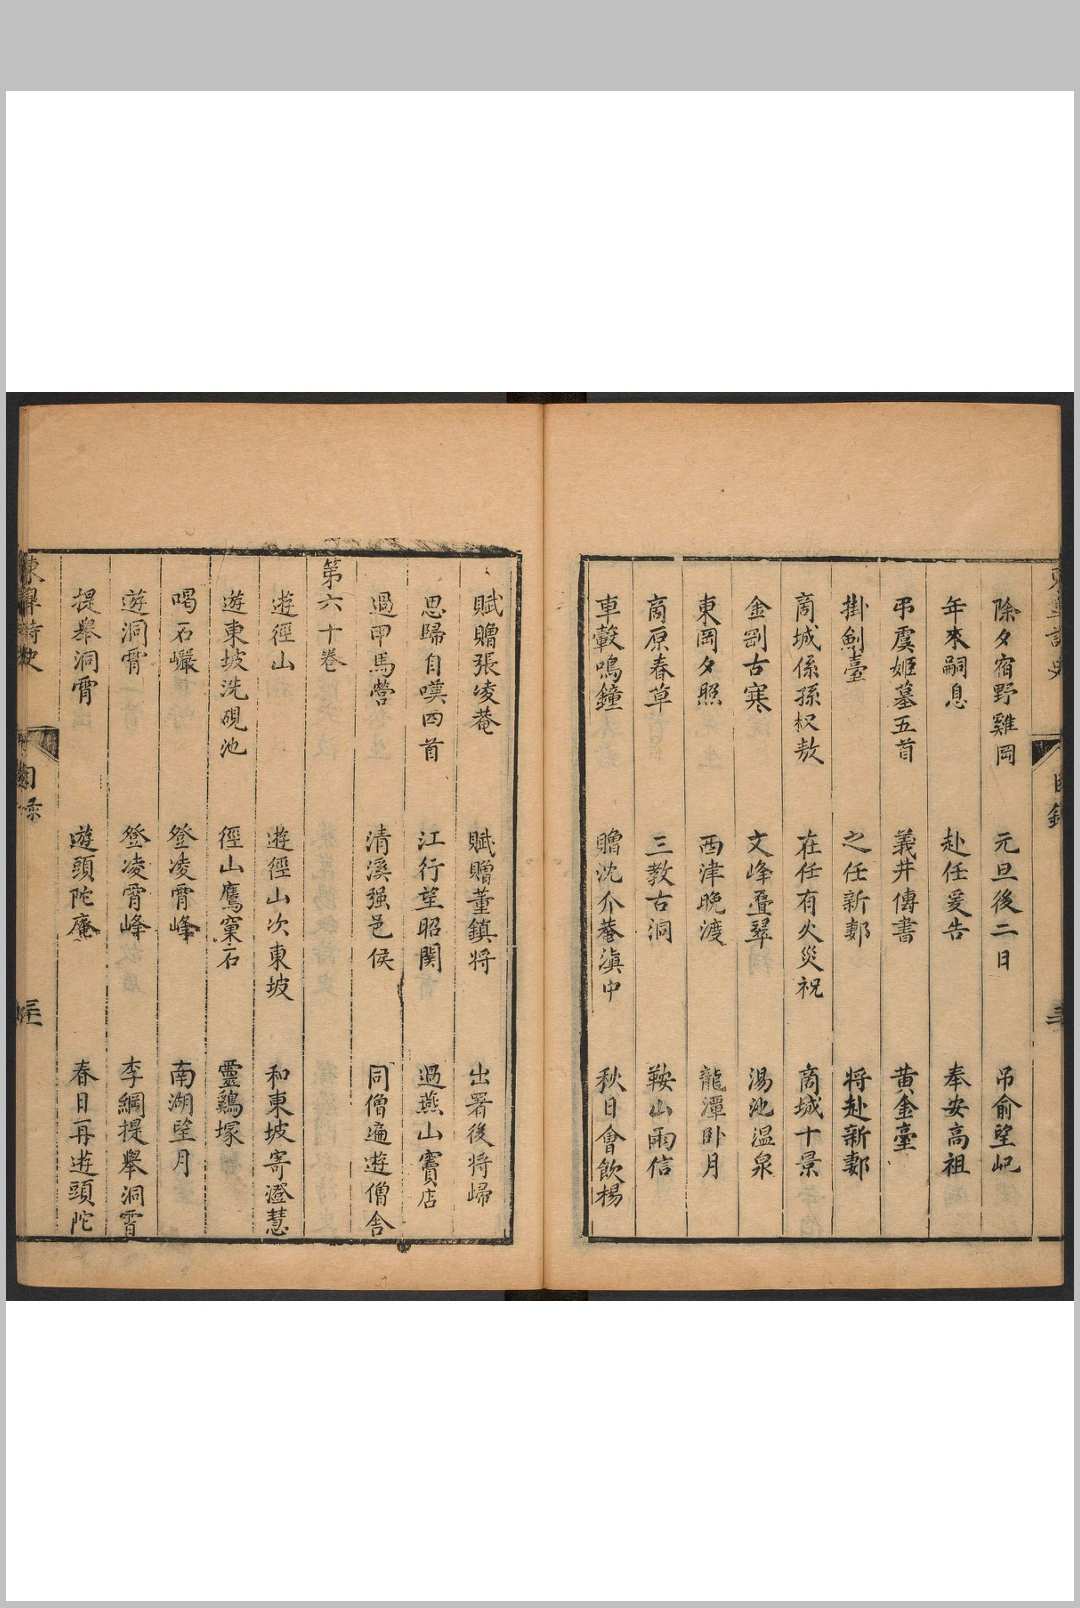 除夕宿野雞岡 元旦後二日 吊俞望屺
年來嗣息 赴任爰告 奉安高祖
弔虞姬墓五首 義井傳書 黄金臺
掛劍臺 之任新鄴 将赴新鄴
商城係孫叔敖 在任有火災祝 商城十景
金剛古寒 文峰疊翠 湯池温泉
東岡夕照 西津晚渡 龍潭卧月
商原春草 三教古洞 鞍山雨信
車轂鳴鐘 贈沈介菴滇中 秋日會飲楊
賦贈張凌菴 賦贈董鎮将 出署後将歸
思歸自嘆四首 江行望昭関 過燕山竇店
過甲馬營 清溪强邑侯 同僧遍遊僧舍
第六十卷
遊徑山 遊徑山次東坡 和東坡寄澄慧
遊東坡洗硯池 徑山鷹窠石 靈鷄塚
喝石巖 登凌霄峰 南湖望月
遊洞霄 登凌霄峰 李綱提舉洞霄
提舉洞霄 遊頭陀庵 春日再遊頭陀
東皋詩史 目录